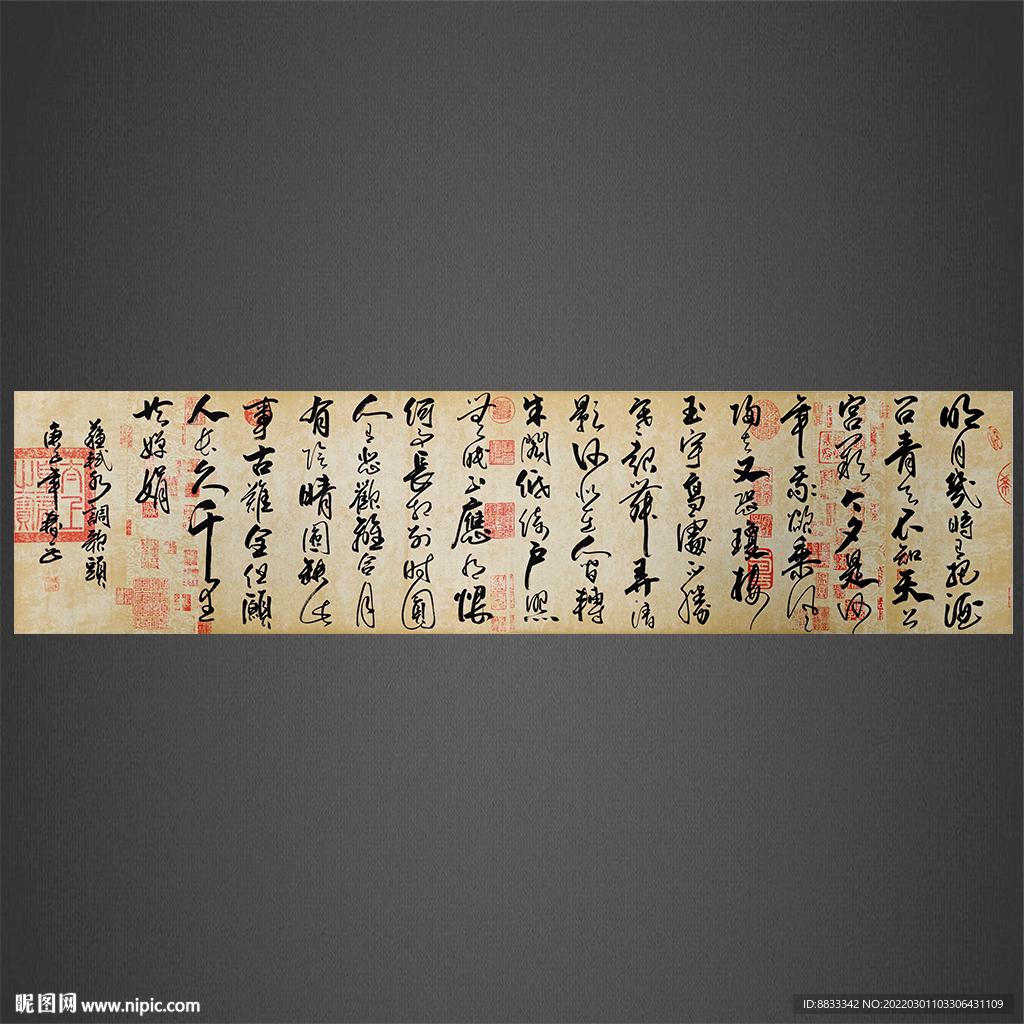 明月幾時有把酒
问青天不知天上
宫闕今夕是何
年我欲乘风
归去又恐瓊樓
玉宇高處不勝
寒起舞弄清
影何似在人间轉
朱閣低綺户照
無眠不應有恨
何事長向别时圓
人有悲歡離合月
有陰晴圆缺此
事古難全但願
人长久千里
共嬋娟
蘇軾水調歌頭
庚子年
昵图网 www.nipic.com
ID:8833342 NO:20220301103306431109